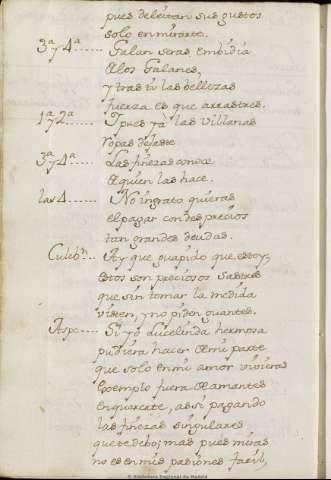 pues deleitan sus gustos
solo en mirarte.
3ª y 4ª...... Galan seras embidia
de los Galanes,
y tras ti las bellezas
fuerza es que arrastres.
1ª y 2ª...... I pues ya las villanas
ropas dejaste
3ª y 4ª...... Las finezas conoce
de quien las hace.
las 4...... No ingrato quieras
el pagar con desprecios
tan grandes deudas.
Culebª... Ay que guapido que estoy;
estos son preciosos sastres
que sin tomar la medida
visten, y no piden guantes.
Aspe.... Si yo Lucelinda hermosa
pudiera hacer de mi parte
que solo en mi amor vivieras
exemplo fuera de amantes
en quererte, assi pagando
las finezas singulares
que te debo; mas pues miras
no es en mis pasiones facil,
© Biblioteca Regional de Madrid